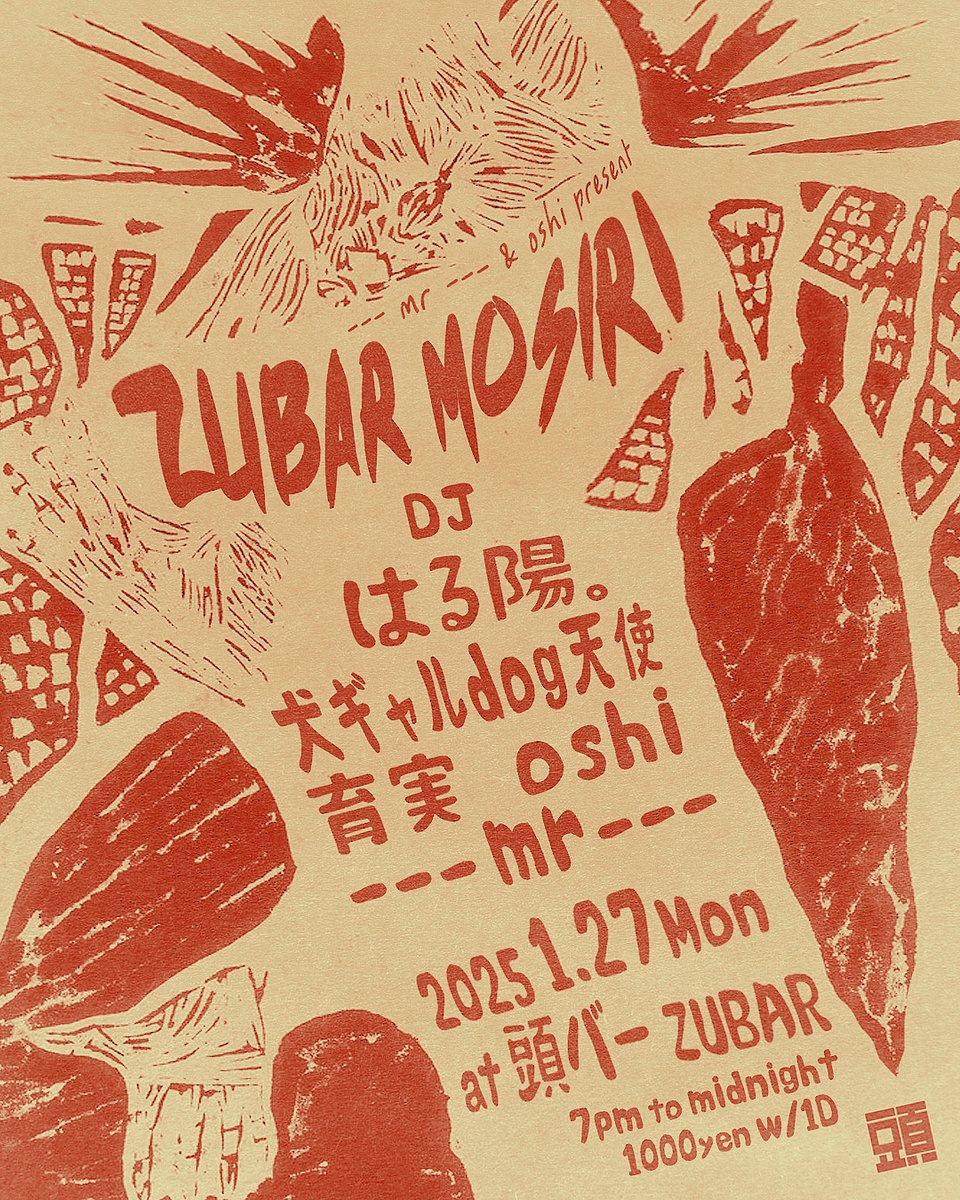 --- mr --- & oshi present
ZUBAR MOSIRI
DJ
はる陽。
犬ギャルdog天使
育実 oshi
---mr---
2025 1.27 Mon
at 頭バー ZUBAR
7pm to midnight
1000yen w/1D
頭